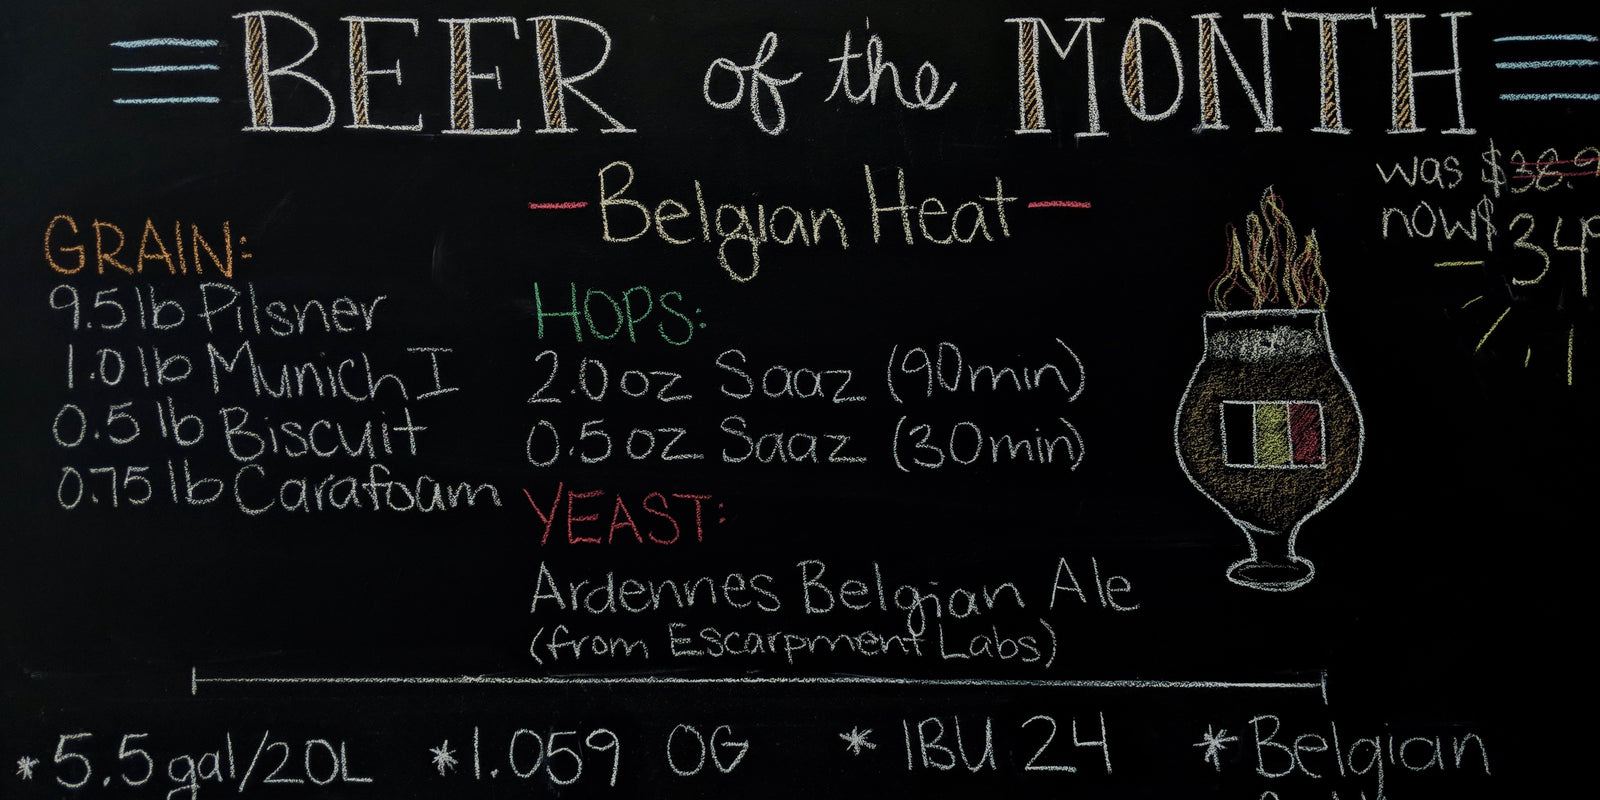 BEER of the MONTH
Belgian Heat
was $38.9
now $34
GRAIN:
9.5 lb Pilsner
1.0 lb Munich I
0.5 lb Biscuit
0.75 lb Carafoam
HOPS:
2.0 oz Saaz (90min)
0.5 oz Saaz (30min)
YEAST:
Ardennes Belgian Ale
(from Escarpment Labs)
*5.5 gal/20L *1.059 OG * IBU 24 *Belgian